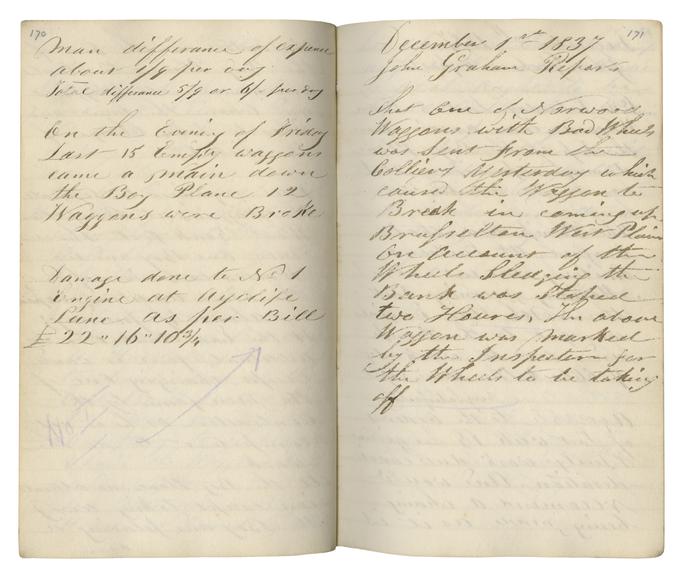 170
Man differance of expence
about 1/9 per day
Total differance 5/9 or 6/- per day
On the Evning of Friday
Last 15 Empty waggons
came a main down
the Bog Plane 12
Waggons were Broke
Damage done to No 1
Engine at Aycliffe
Lane as per Bill
£22 " 16 " 10 3/4
171
December 1st 1837
John Graham Reports
that One of Norwood
Waggons with Bad Wheels
was Sent from the
Colliery Yesterday which
caused the Waggon to
Break in coming up
Brusselton West Plain
On account of the
Wheels Sledging the
Bank was Stoped
two Houres, the above
Waggon was marked
by the Inspector for
the Wheels to be taking
off